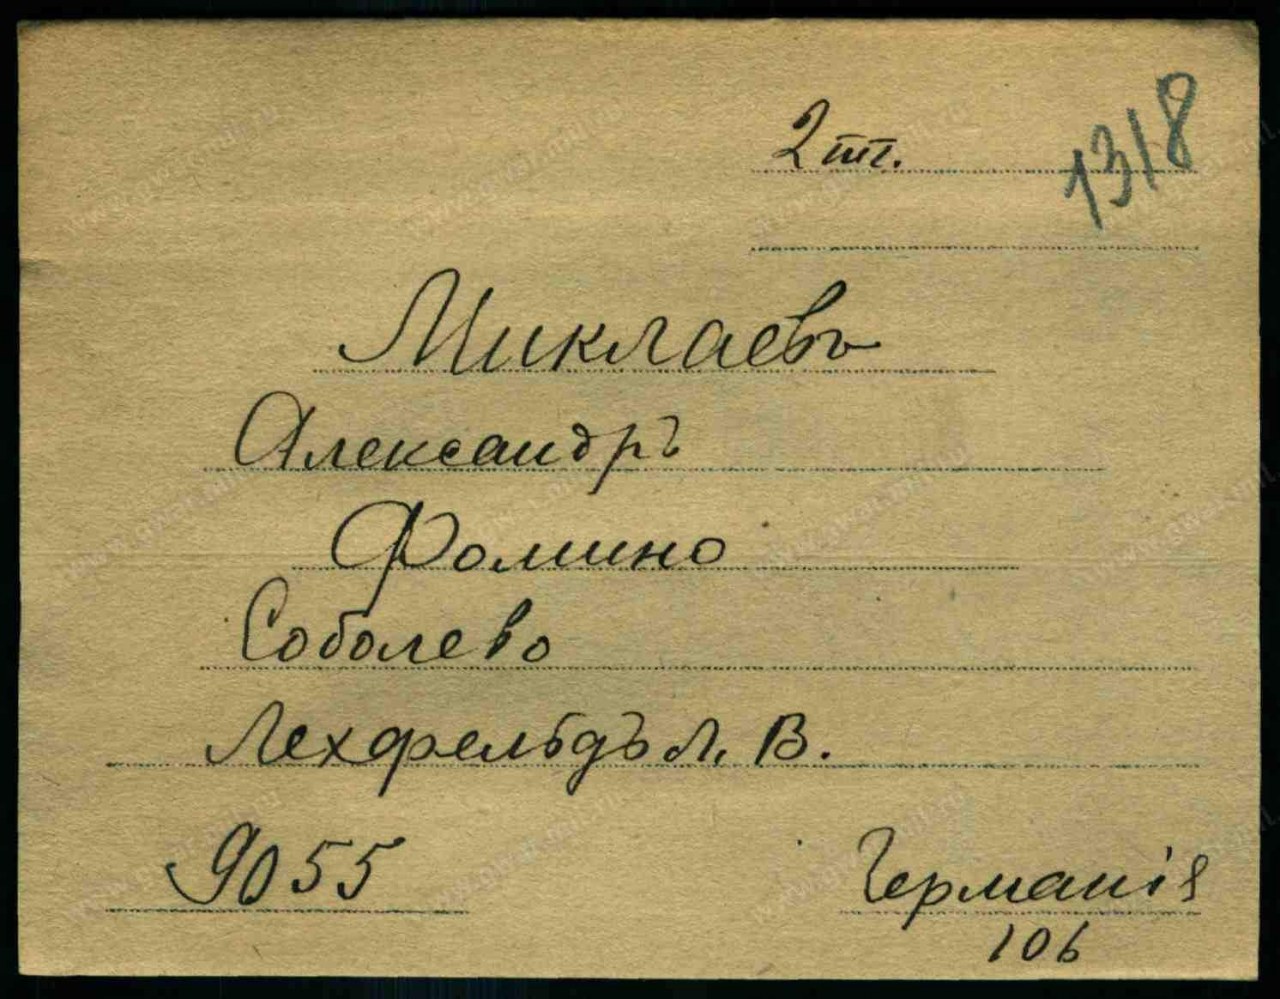 1318
2 т.
Миклаевъ
Александръ
Фомино
Соболево
Лехфельдъ Л. В.
9055
Германія
106